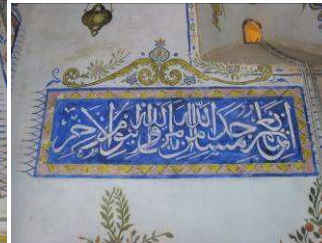 انما يعمر مساجد الله من امن بالله واليوم الاخر